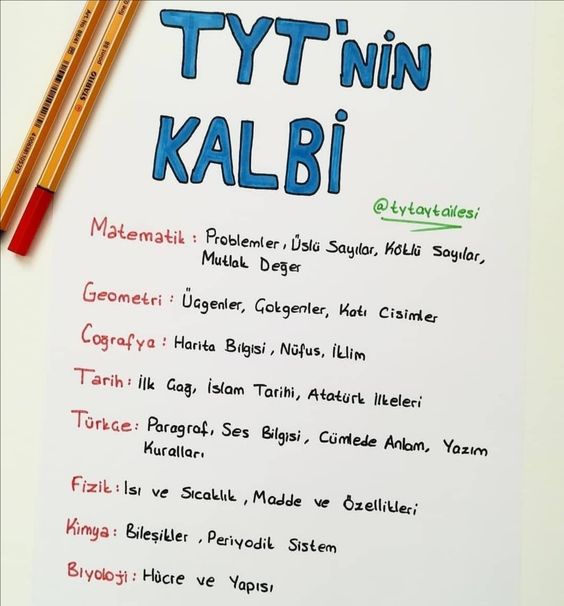 TYT'NİN
KALBİ
@tytaytailesi
Matematik : Problemler, Üslü Sayılar, Köklü Sayılar,
Mutlak Değer
Geometri : Üçgenler, Çokgenler, Katı Cisimler
Coğrafya : Harita Bilgisi, Nüfus, İklim
Tarih : İlk Çağ, İslam Tarihi, Atatürk İlkeleri
Türkçe : Paragraf, Ses Bilgisi, Cümlede Anlam, Yazım
Kuralları
Fizik : Isı ve Sıcaklık, Madde ve Özellikleri
Kimya : Bileşikler, Periyodik Sistem
Biyoloji : Hücre ve Yapısı
STABILO